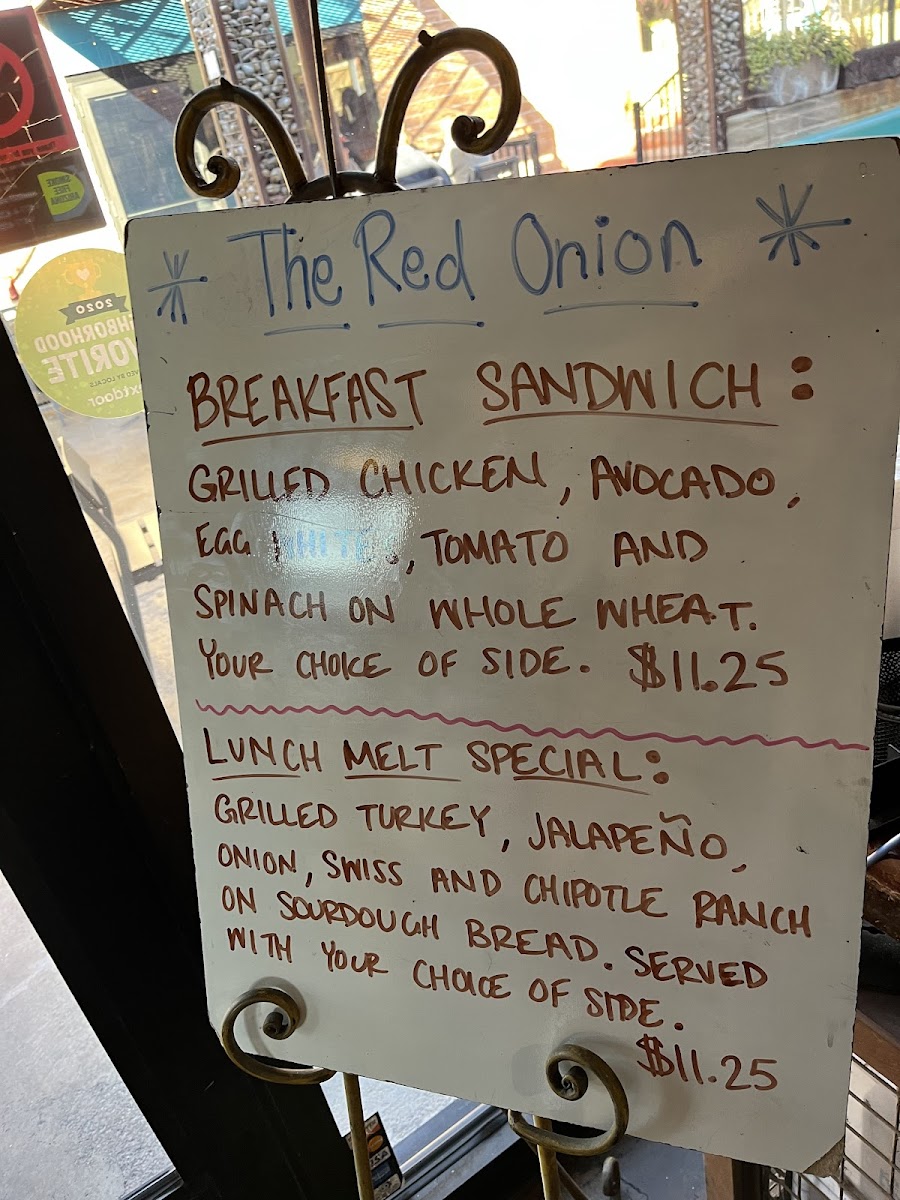 * The Red Onion *
BREAKFAST SANDWICH:
GRILLED CHICKEN, AVOCADO,
EGG WHITES, TOMATO AND
SPINACH ON WHOLE WHEAT.
YOUR CHOICE OF SIDE. $11.25
LUNCH MELT SPECIAL:
GRILLED TURKEY, JALAPEÑO,
ONION, SWISS AND CHIPOTLE RANCH
ON SOURDOUGH BREAD. SERVED
WITH YOUR CHOICE OF SIDE.
$11.25
SMOKE
FREE
ARIZONA
2020
HBORHOOD
ORITE
ED BY LOCALS
xtdoor